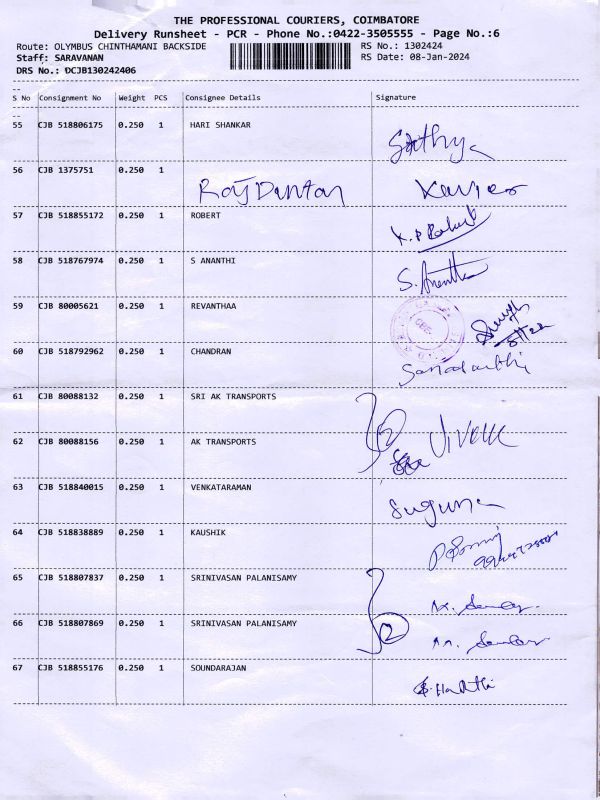 THE PROFESSIONAL COURIERS, COIMBATORE
Delivery Runsheet - PCR - Phone No.:0422-3505555 - Page No.:6
Route: OLYMBUS CHINTHAMANI BACKSIDE RS No.: 1302424
Staff: SARAVANAN RS Date: 08-Jan-2024
DRS No.: DCJB130242406
S No Consignment No Weight PCS Consignee Details Signature
55 CJB 518806175 0.250 1 HARI SHANKAR Sathya
56 CJB 1375751 0.250 1 Xavier
57 CJB 518855172 0.250 1 ROBERT
58 CJB 518767974 0.250 1 S ANANTHI S. Ananthi
59 CJB 80005621 0.250 1 REVANTHAA
60 CJB 518792962 0.250 1 CHANDRAN
61 CJB 80088132 0.250 1 SRI AK TRANSPORTS
62 CJB 80088156 0.250 1 AK TRANSPORTS 2 Vivek
63 CJB 518840015 0.250 1 VENKATARAMAN Suguna
64 CJB 518838889 0.250 1 KAUSHIK
65 CJB 518807837 0.250 1 SRINIVASAN PALANISAMY
66 CJB 518807869 0.250 1 SRINIVASAN PALANISAMY 2
67 CJB 518855176 0.250 1 SOUNDARAJAN